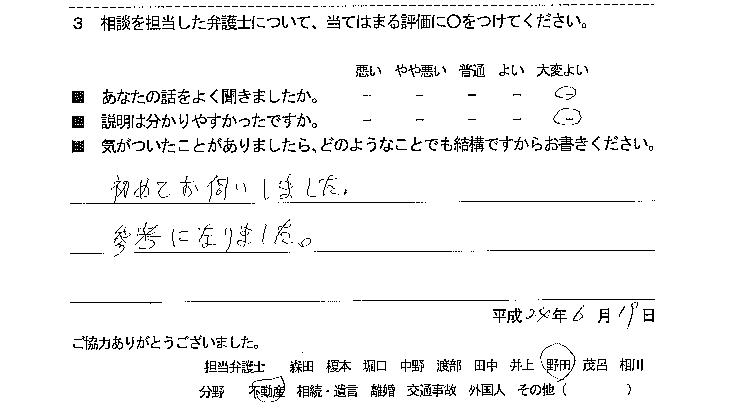 3 相談を担当した弁護士について、当てはまる評価に〇をつけてください。
悪い やや悪い 普通 よい 大変よい
■ あなたの話をよく聞きましたか。 － － － － －
■ 説明は分かりやすかったですか。 － － － － －
■ 気がついたことがありましたら、どのようなことでも結構ですからお書きください。
初めてお伺いしました。
参考になりました。
平成24年6月19日
ご協力ありがとうございました。
担当弁護士 森田 榎本 堀口 中野 渡部 田中 井上 野田 茂呂 相川
分野 不動産 相続・遺言 離婚 交通事故 外国人 その他（ ）